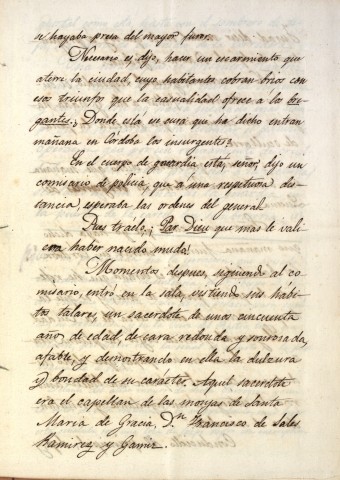 se hayaba presa del mayor furor.
Necesario es, dijo, hacer un escarmiento que
aterre la ciudad, cuyos habitantes cobran brios con
esos triunfos que la casualidad ofrece a los bri-
gantes. ¿Donde esta ese cura que ha dicho entran
mañana en Córdoba los insurgentes?
En el cuerpo de guardia está, señor; dijo un
comisario de policia, que á una respetuosa dis-
tancia, esperaba las ordenes del general
Pues traelo; ¡Par Dieu que mas le vali-
era haber nacido mudo!
Momentos despues, siguiendo al co-
misario, entró en la sala, vistiendo sus hábi-
tos talares, un sacerdote de unos cincuenta
años de edad, de cara redonda y sonrosada,
afable, y demostrando en ella la dulzura
y bondad de su caracter. Aquel sacerdote
era el capellan de las monjas de Santa
Maria de Gracia, Dn. Francisco de Sales
Ramirez y Gamiz.